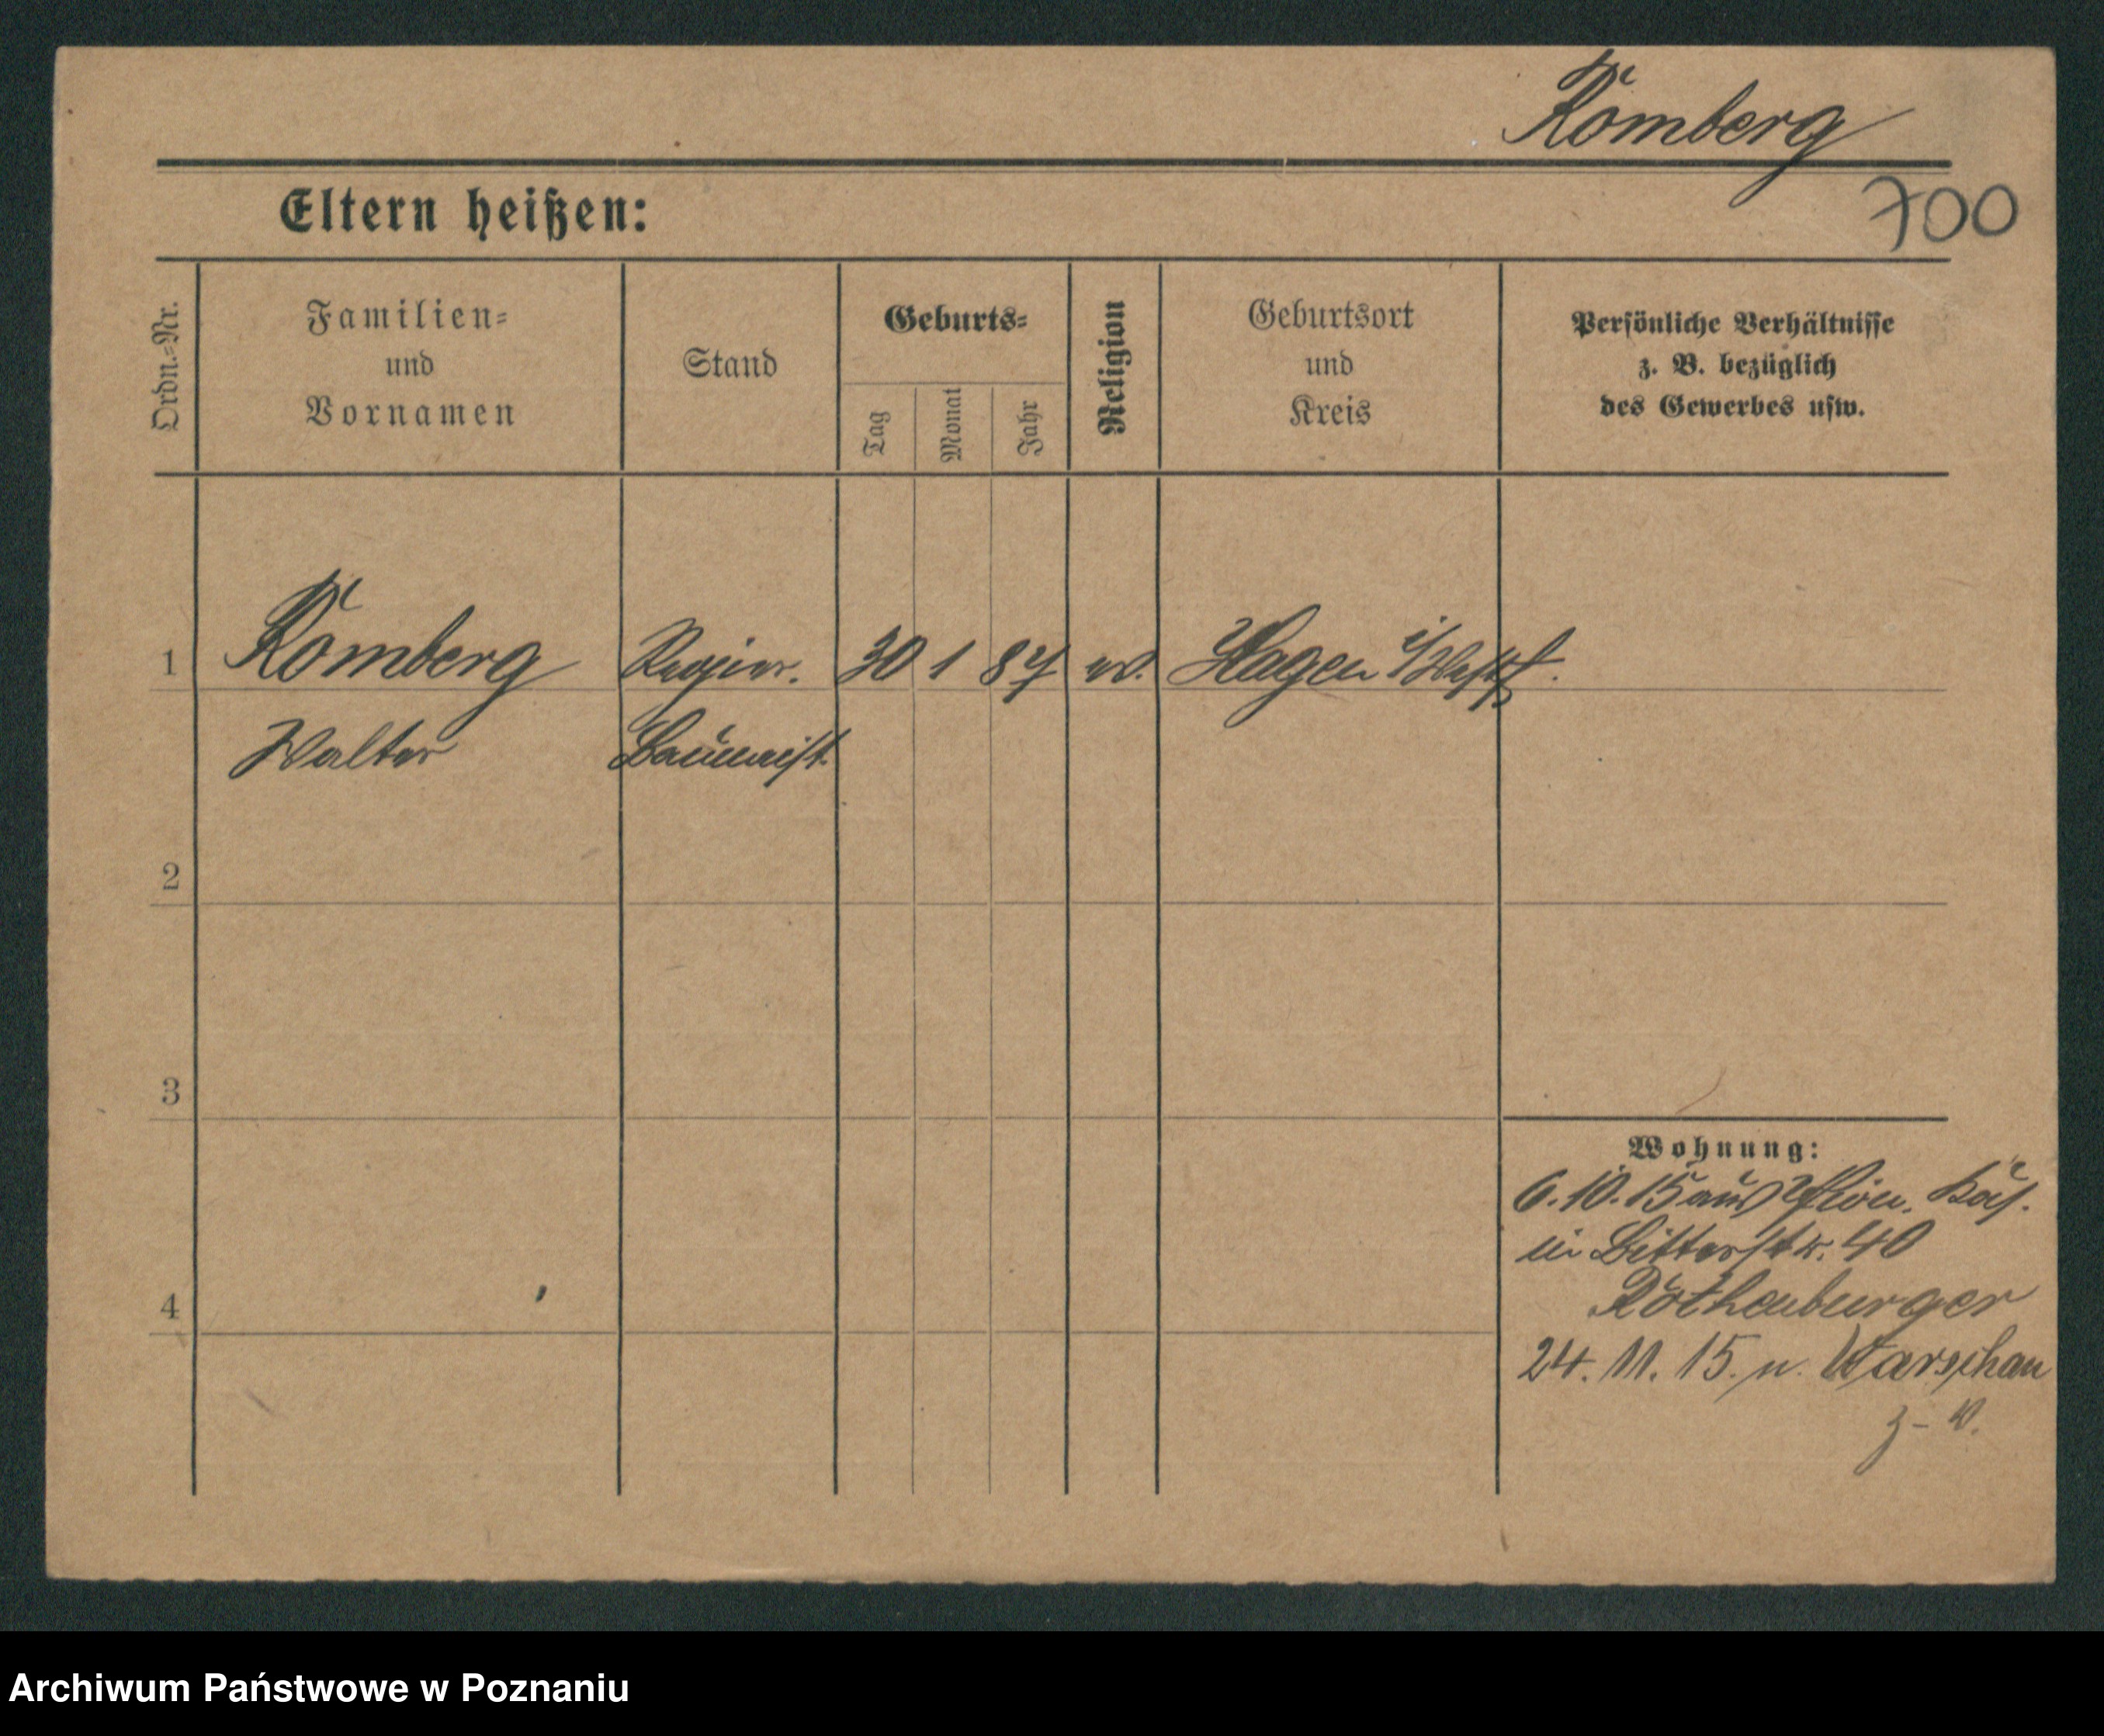 Romberg
700
Eltern heißen:
Ordn.=Nr.
Familien=
und
Vornamen
Stand
Geburts=
Tag
Monat
Jahr
Religion
Geburtsort
und
Kreis
Persönliche Verhältnisse
z. B. bezüglich
des Gewerbes usw.
1 Romberg Regier. 30 1 87 ev. Hagen i/Westf.
Walter Baumeist.
2
3
4
Wohnung:
6. 10. 15 aus
in Ritterstr. 40
Rothenburger
24. 11. 15. n. Warschau
Archiwum Państwowe w Poznaniu